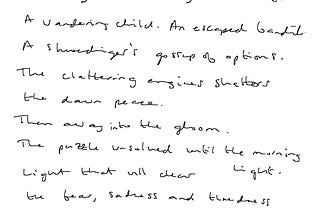 A wandering child. An escaped bandit.
A Shroedinger's gossip of options.
The clattering engines shatters
the dawn peace.
Then away into the gloom.
The puzzle unsolved until the morning
light.
Light that will clear
the fear, sadness and tiredness